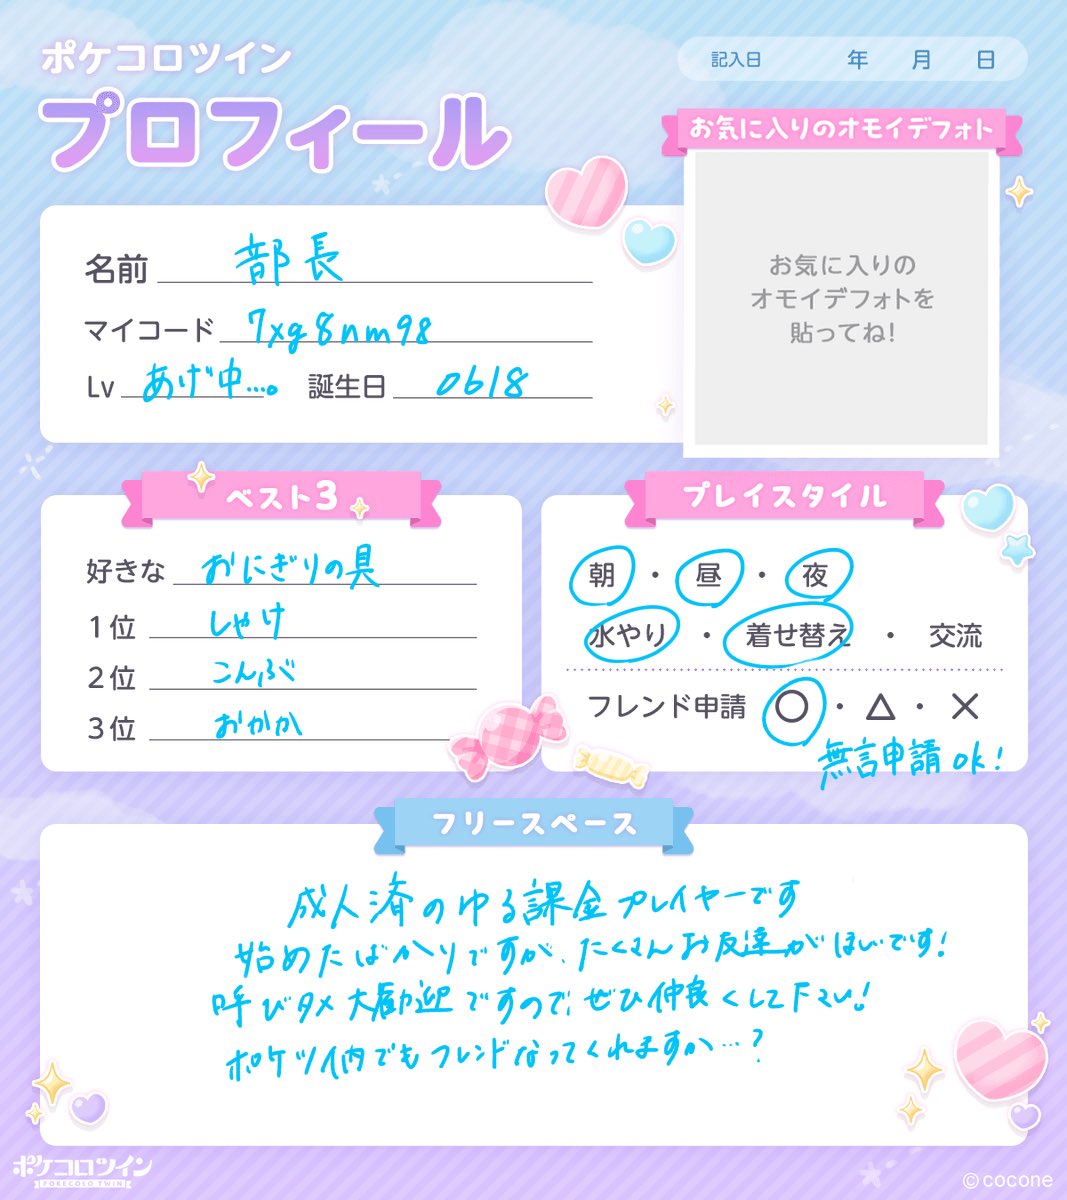 ポケコロツイン
プロフィール
記入日 年 月 日
お気に入りのオモイデフォト
お気に入りの
オモイデフォトを
貼ってね!
名前 部長
マイコード 7xg8nm98
Lv あげ中…。 誕生日 0618
ベスト3
好きな おにぎりの具
1位 しゃけ
2位 こんぶ
3位 おかか
プレイスタイル
朝・昼・夜
水やり・着せ替え・交流
フレンド申請 〇・△・×
無言申請ok!
フリースペース
成人済のゆる課金プレイヤーです
始めたばかりですが、たくさんお友達がほしいです!
呼びタメ大歓迎ですので、ぜひ仲良くして下さい!
ポケツイ内でもフレンドなってくれますか…?
ポケコロツイン
POKECOLO TWIN
©cocone